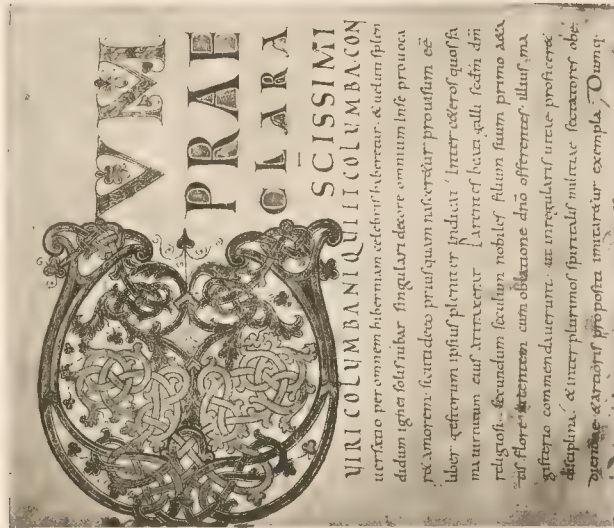 CVM
PRAE
CLARA
SC̄ISSIMI
VIRI COLUMBANI QUI ET COLUMBA. CON
uersatio per omnem hiberniam celebris haberetur. & uelut splen
didum ignei solis iubar singulari decore omnium in se prouoca
r& amorem. sicuti de eo priusquam nascer&ur prouisum eē
liber gestorum ipsius pleniter indicat. Inter c&eros quos fa
ma uirtutum eius attraxerat parentes beati galli sec̄dm dm̄
religiosi. secundum seculum nobiles filium suum primo aeta
tis flore nitentem cum oblatione dn̄o offerentes. illius ma
gisterio commendauerunt. ut in regularis uitae proficer&
disciplina. & inter plurimos spiritalis militiae sectatores obe
dientiae & artioris propositi imitar&ur exempla. Dumq.